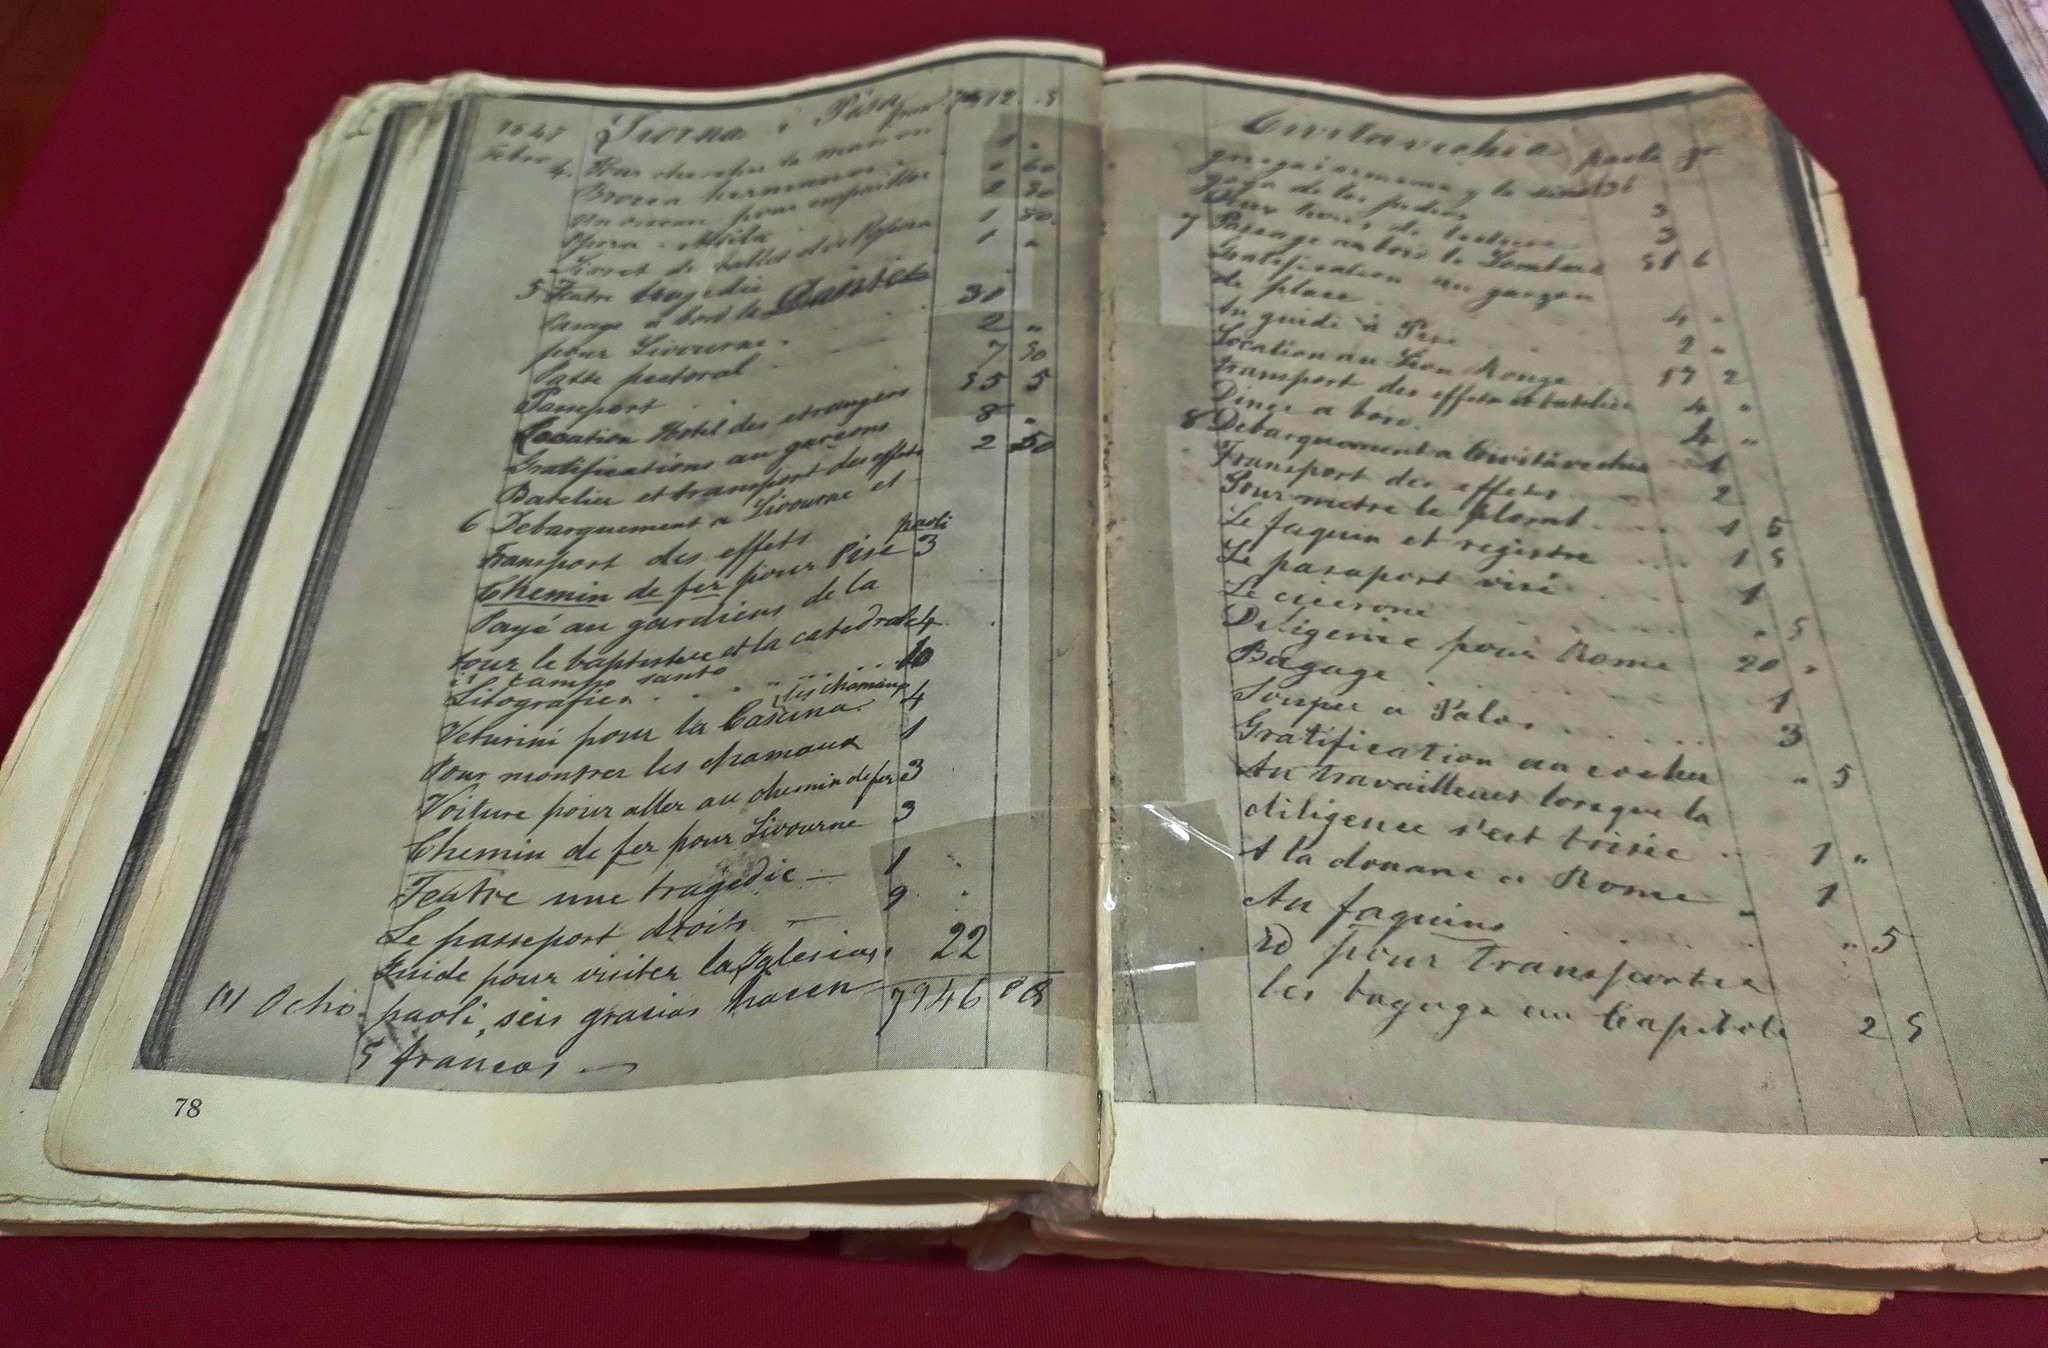 1847 Liorna i Pisa 7812
Febro 4. Pour chercher la maison 1 "
60
Un oiseau pour empailler 2 50
Opera Attila 1 50
Livret du ballet et de l'Opera 1 "
5 Teatre tragedie
Pasage a bord le Dante 30
pour Livourne. 2 "
Patte pectoral 7 50
Passeport
Location Hotel des etrangers 35 5
Gratifications au garcons 8 "
Batelier et transport des effets 2 50
6 Debarquement a Livourne et
Transport des effets paoli
Chemin de fer pour Pise 3
Payé au gardiens de la
tour le baptistere et la catedrale 4
campo santo
Litografies 10
Veturini pour la Cascina. (les chamaux 4
Pour montrer les chamaux 1
Voiture pour aller au chemin de fer 3
Chemin de fer pour Livourne 3
Teatre une tragedie — 1
Le passeport droits — 9
Guide pour visiter las Yglesias 22
(1) Ocho paoli, seis gracias hacen 7946
5 francos. —
78
Civitavechia paoli
3
de lecture 3
7 Passage au bord le Lombard 51 6
Gratification au garçon
de place 4 "
Au guide a Pise 2 "
Location au Lion Rouge 17 2
Transport des effets et batelier 4 "
Diner a bord. 4 "
8 Debarquement a Civitavechia 1
Transport des effets 2
Pour metre le plomb 1 5
Le faquin et registre 1 5
Le pasaport visé 1
Le cicerone " 5
Diligence pour Rome 20 "
Bagage 1
Souper a Palo 3
Gratification au cocher " 5
Au travailleur lorsque la
diligence s'est brisée 1 "
A la douane a Rome 1
Au faquins " 5
ID pour transporter
les bagage au Capitole 2 5